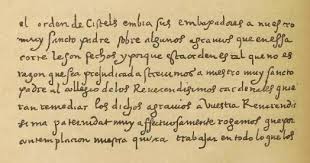 el orden de Cistels embia sus embaxadores a nuestro
muy sancto padre sobre algunos agravios que en essa
corte les son fechos y porque esta orden es tal que no es
razon que sea prejudicada screvimos a nuestro muy sancto
padre al collegio de los Reverendisimos cardenales que
ran remediar los dichos agravios a vuestra Reverendis
sima paternidat muy affectuosamente rogamos que por
contemplacion nuestra quiera trabajar en todo lo que los